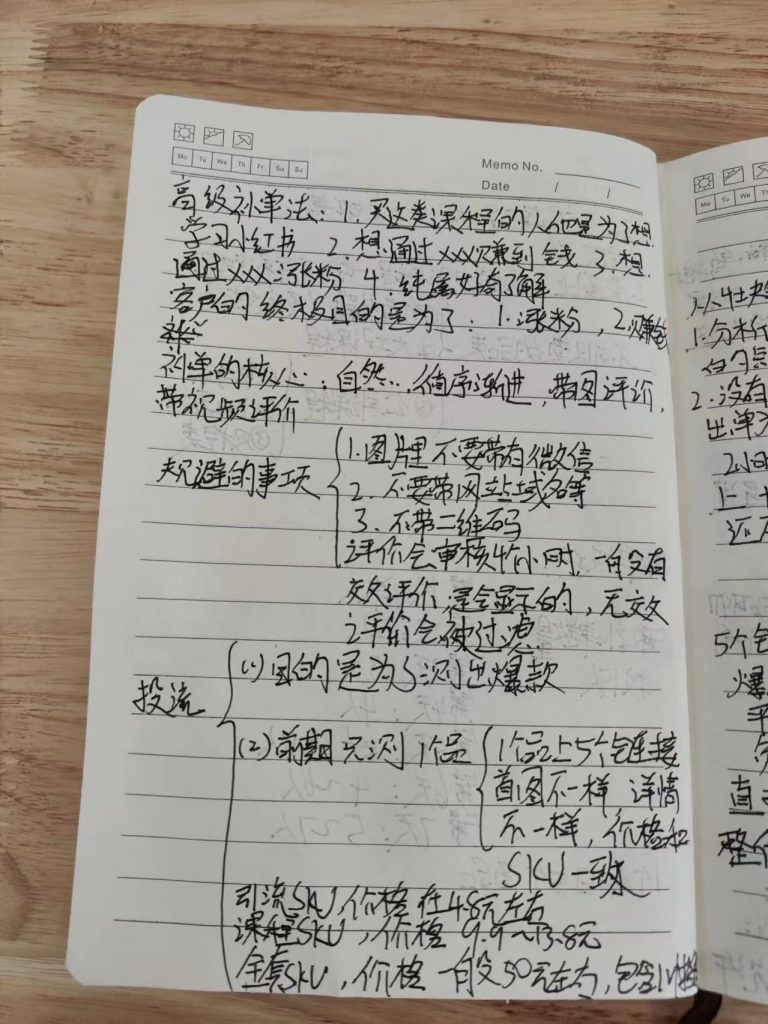 Mo Tu We Th Fr Sa Su
Memo No.
Date / /
高级补单法：1. 买这类课程的人他是为了想
学习小红书 2. 想通过xxx赚到钱 3. 想
通过xxx涨粉 4. 纯属好奇了解
客户的终极目的是为了：1. 涨粉，2. 赚钱
补单的核心：自然…，循序渐进，带图评价，
带视频评价
规避的事项
1. 图片里不要带有微信
2. 不要带网站域名等
3. 不带二维码
评价会审核4个小时，一般有
效评价，是会显示的，无效
评价会被过滤
投流
(1) 目的是为了测出爆款
(2) 前期只测1个品
1个品上5个链接
首图不一样 详情
不一样，价格和
SKU一致
引流SKU，价格在4.8元左右
课程SKU，价格9.9~13.8元
全套SKU，价格一般50元左右，包含
Mo Tu We Th
1. 分析
2. 没有
出单
2小时
5个
爆
平
直
整个